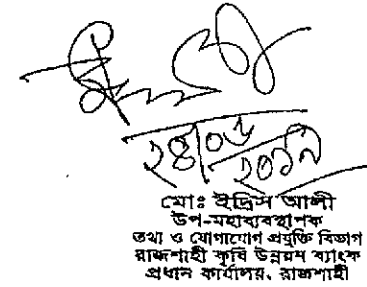 মোঃ ইদ্রিস আলী
উপ-মহাব্যবস্থাপক
তথ্য ও যোগাযোগ প্রযুক্তি বিভাগ
রাজশাহী কৃষি উন্নয়ন ব্যাংক
প্রধান কার্যালয়, রাজশাহী